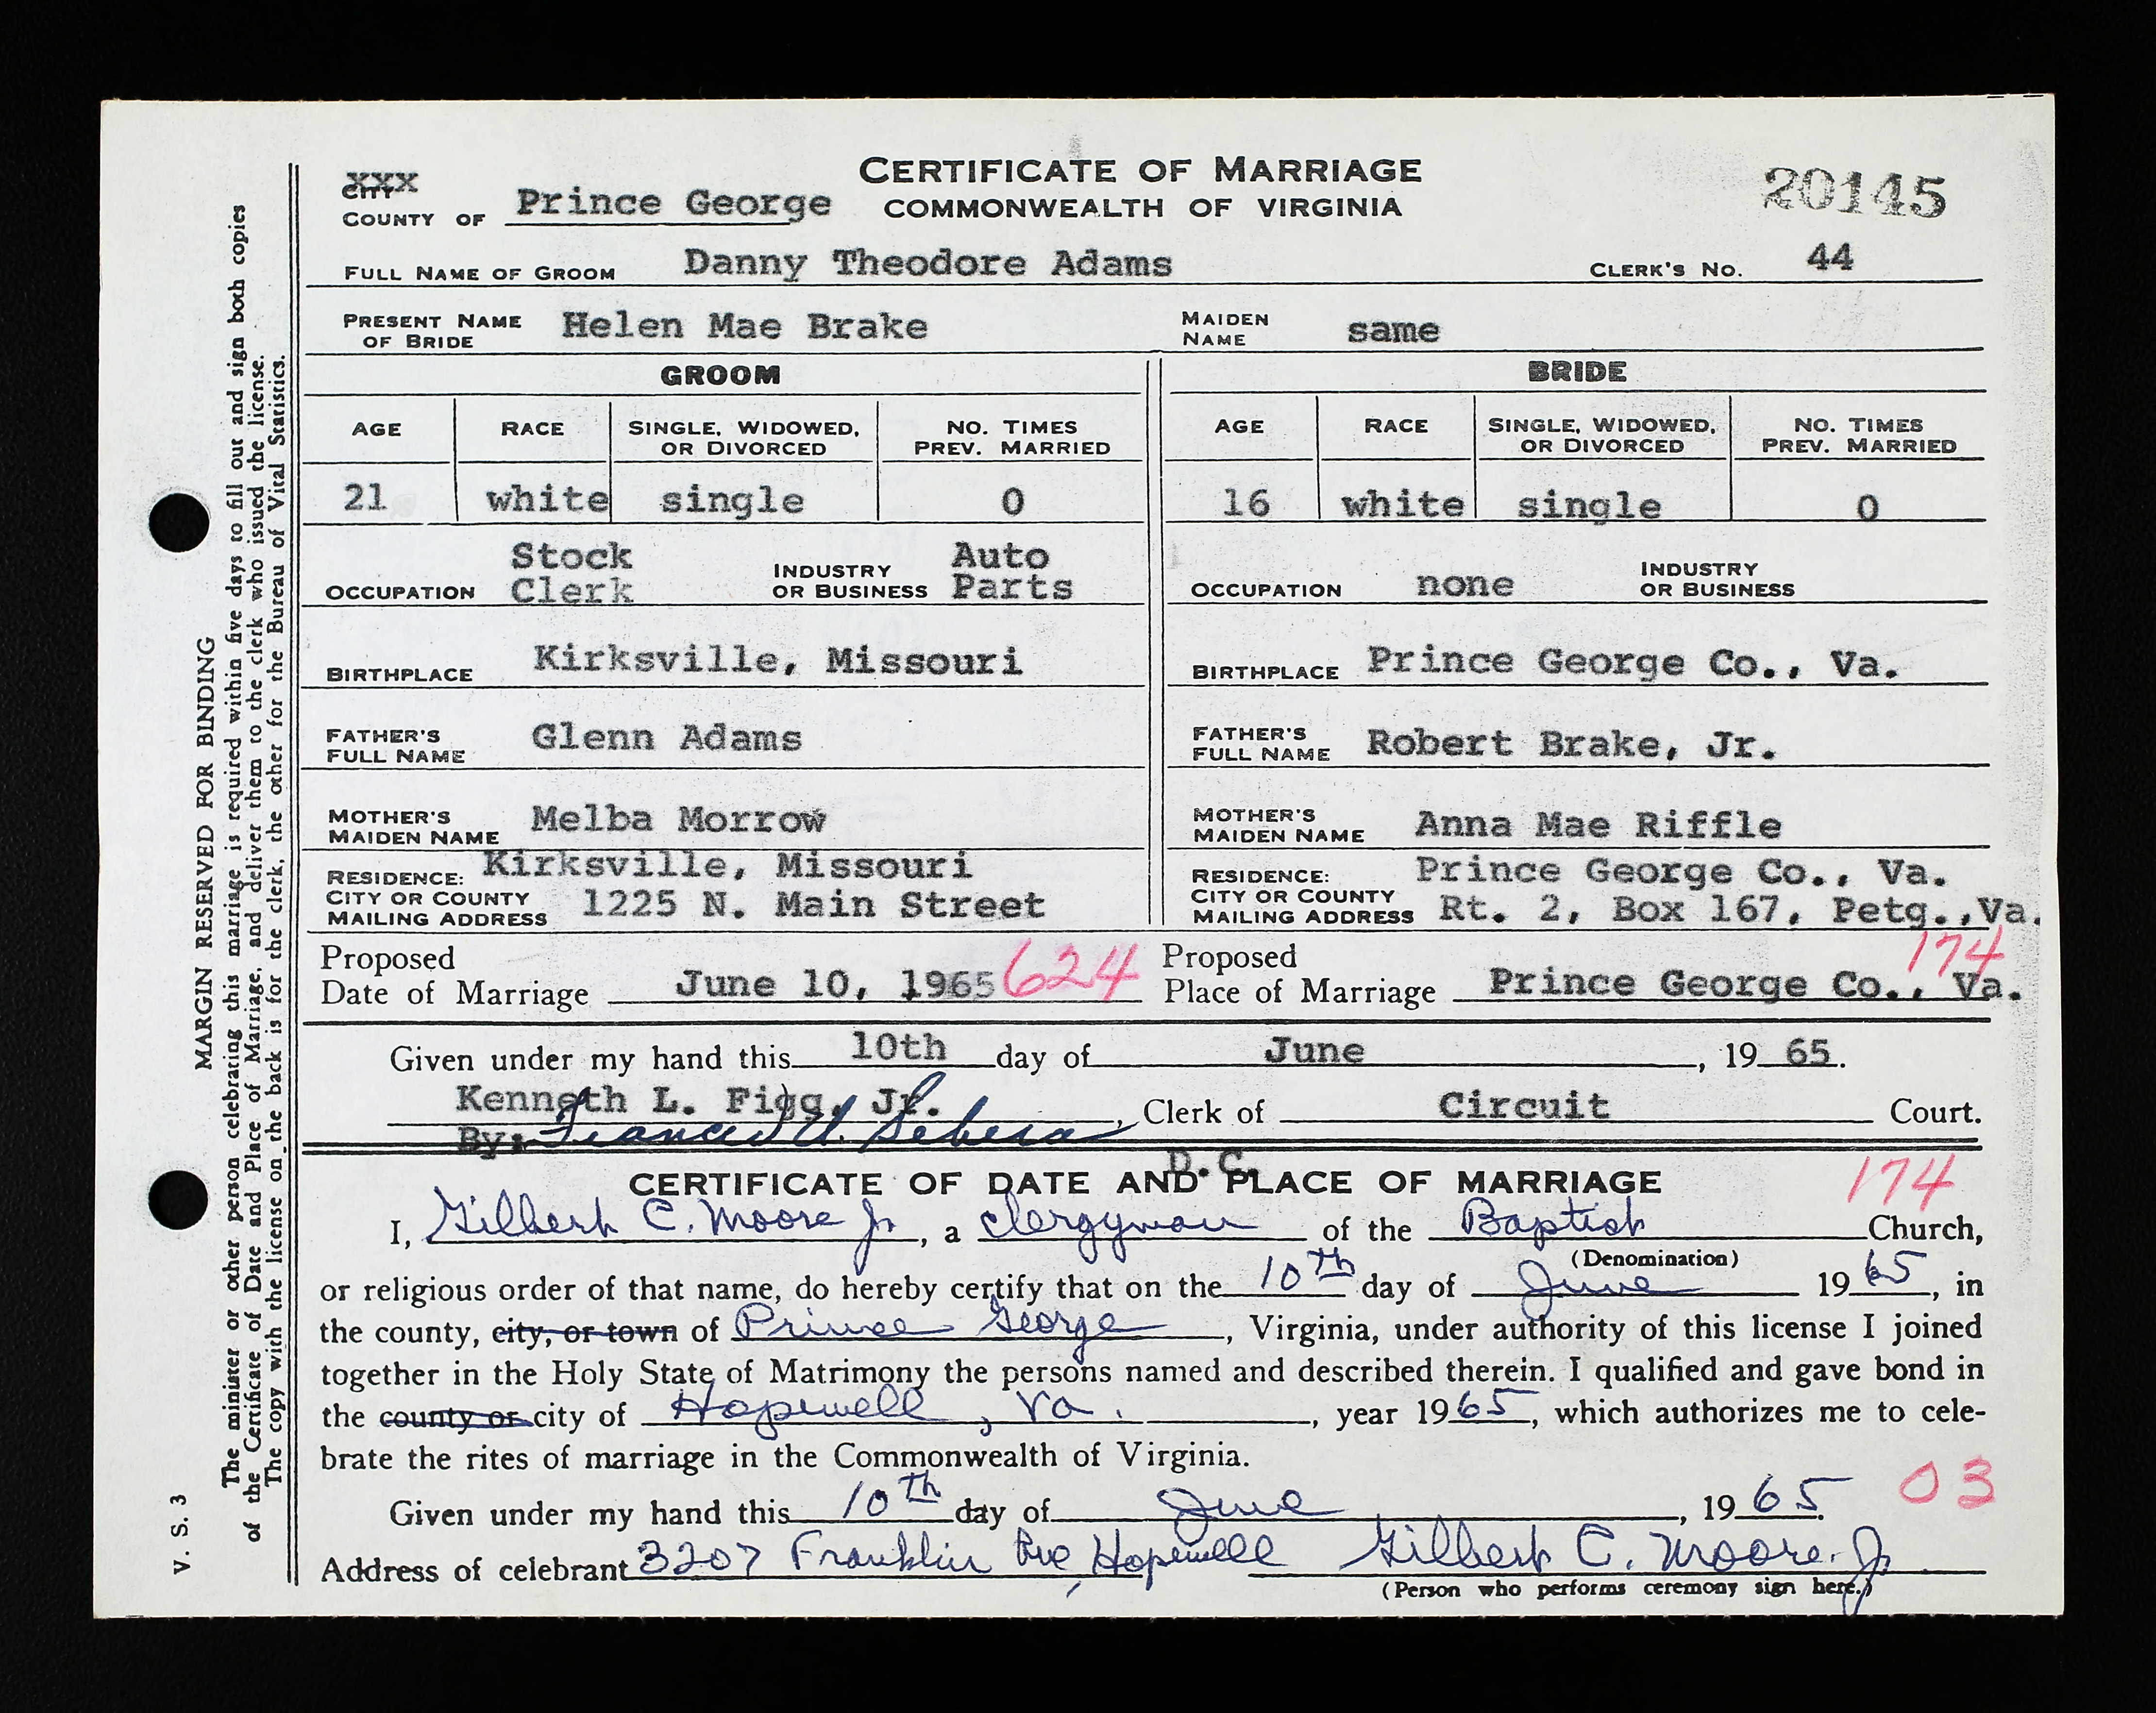 CERTIFICATE OF MARRIAGE
COMMONWEALTH OF VIRGINIA
20145
XXX
CITY
COUNTY OF Prince George
FULL NAME OF GROOM Danny Theodore Adams CLERK'S NO. 44
PRESENT NAME OF BRIDE Helen Mae Brake MAIDEN NAME same
GROOM
AGE RACE SINGLE, WIDOWED, OR DIVORCED NO. TIMES PREV. MARRIED
21 white single 0
OCCUPATION Stock Clerk INDUSTRY OR BUSINESS Auto Parts
BIRTHPLACE Kirksville, Missouri
FATHER'S FULL NAME Glenn Adams
MOTHER'S MAIDEN NAME Melba Morrow
RESIDENCE: CITY OR COUNTY Kirksville, Missouri
MAILING ADDRESS 1225 N. Main Street
BRIDE
AGE RACE SINGLE, WIDOWED, OR DIVORCED NO. TIMES PREV. MARRIED
16 white single 0
OCCUPATION none INDUSTRY OR BUSINESS
BIRTHPLACE Prince George Co., Va.
FATHER'S FULL NAME Robert Brake, Jr.
MOTHER'S MAIDEN NAME Anna Mae Riffle
RESIDENCE: CITY OR COUNTY Prince George Co., Va.
MAILING ADDRESS Rt. 2, Box 167, Petg.,Va.
Proposed Date of Marriage June 10, 1965 624 Proposed Place of Marriage Prince George Co., Va. 174
Given under my hand this 10th day of June, 19 65.
Kenneth L. Figg, Jr., Clerk of Circuit Court.
By: D.C.
CERTIFICATE OF DATE AND PLACE OF MARRIAGE 174
I, Gilbert C. Moore Jr, a clergyman of the Baptist Church,
(Denomination)
or religious order of that name, do hereby certify that on the 10th day of June 1965, in
the county, city, or town of Prince George, Virginia, under authority of this license I joined
together in the Holy State of Matrimony the persons named and described therein. I qualified and gave bond in
the county or city of Hopewell, Va., year 1965, which authorizes me to cele-
brate the rites of marriage in the Commonwealth of Virginia.
03
Given under my hand this 10th day of June, 1965.
Address of celebrant 3207 Franklin Ave, Hopewell Gilbert C. Moore, Jr
(Person who performs ceremony sign here.)
MARGIN RESERVED FOR BINDING
The minister or other person celebrating this marriage is required within five days to fill out and sign both copies
of the Certificate of Date and Place of Marriage, and deliver them to the clerk who issued the license.
The copy with the license on the back is for the clerk, the other for the Bureau of Vital Statistics.
V. S. 3